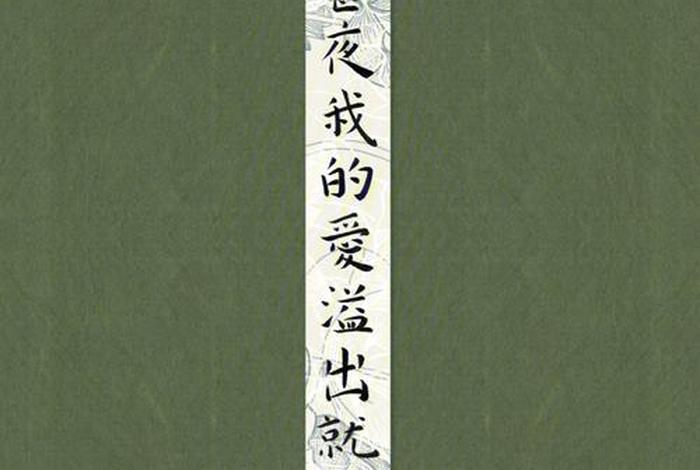 夜我的愛溢出就